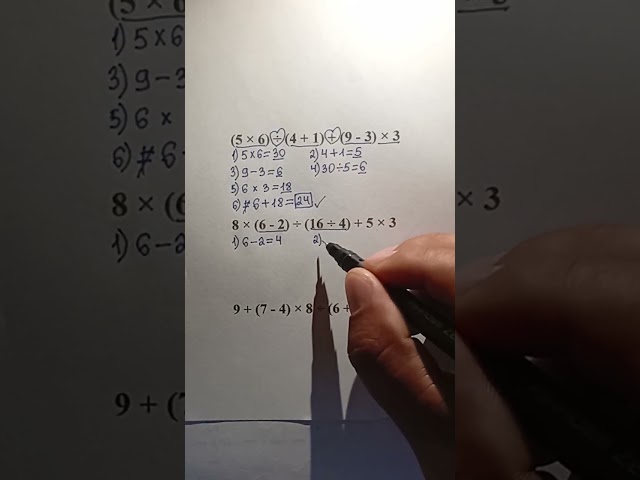 (5 × 6) ÷ (4 + 1) + (9 - 3) × 3
1) 5×6=30 2) 4+1=5
3) 9-3=6 4) 30÷5=6
5) 6 × 3 = 18
6) 6+18=24 ✓
8 × (6 - 2) ÷ (16 ÷ 4) + 5 × 3
1) 6-2=4 2)
9 + (7 - 4) × 8 (6 +